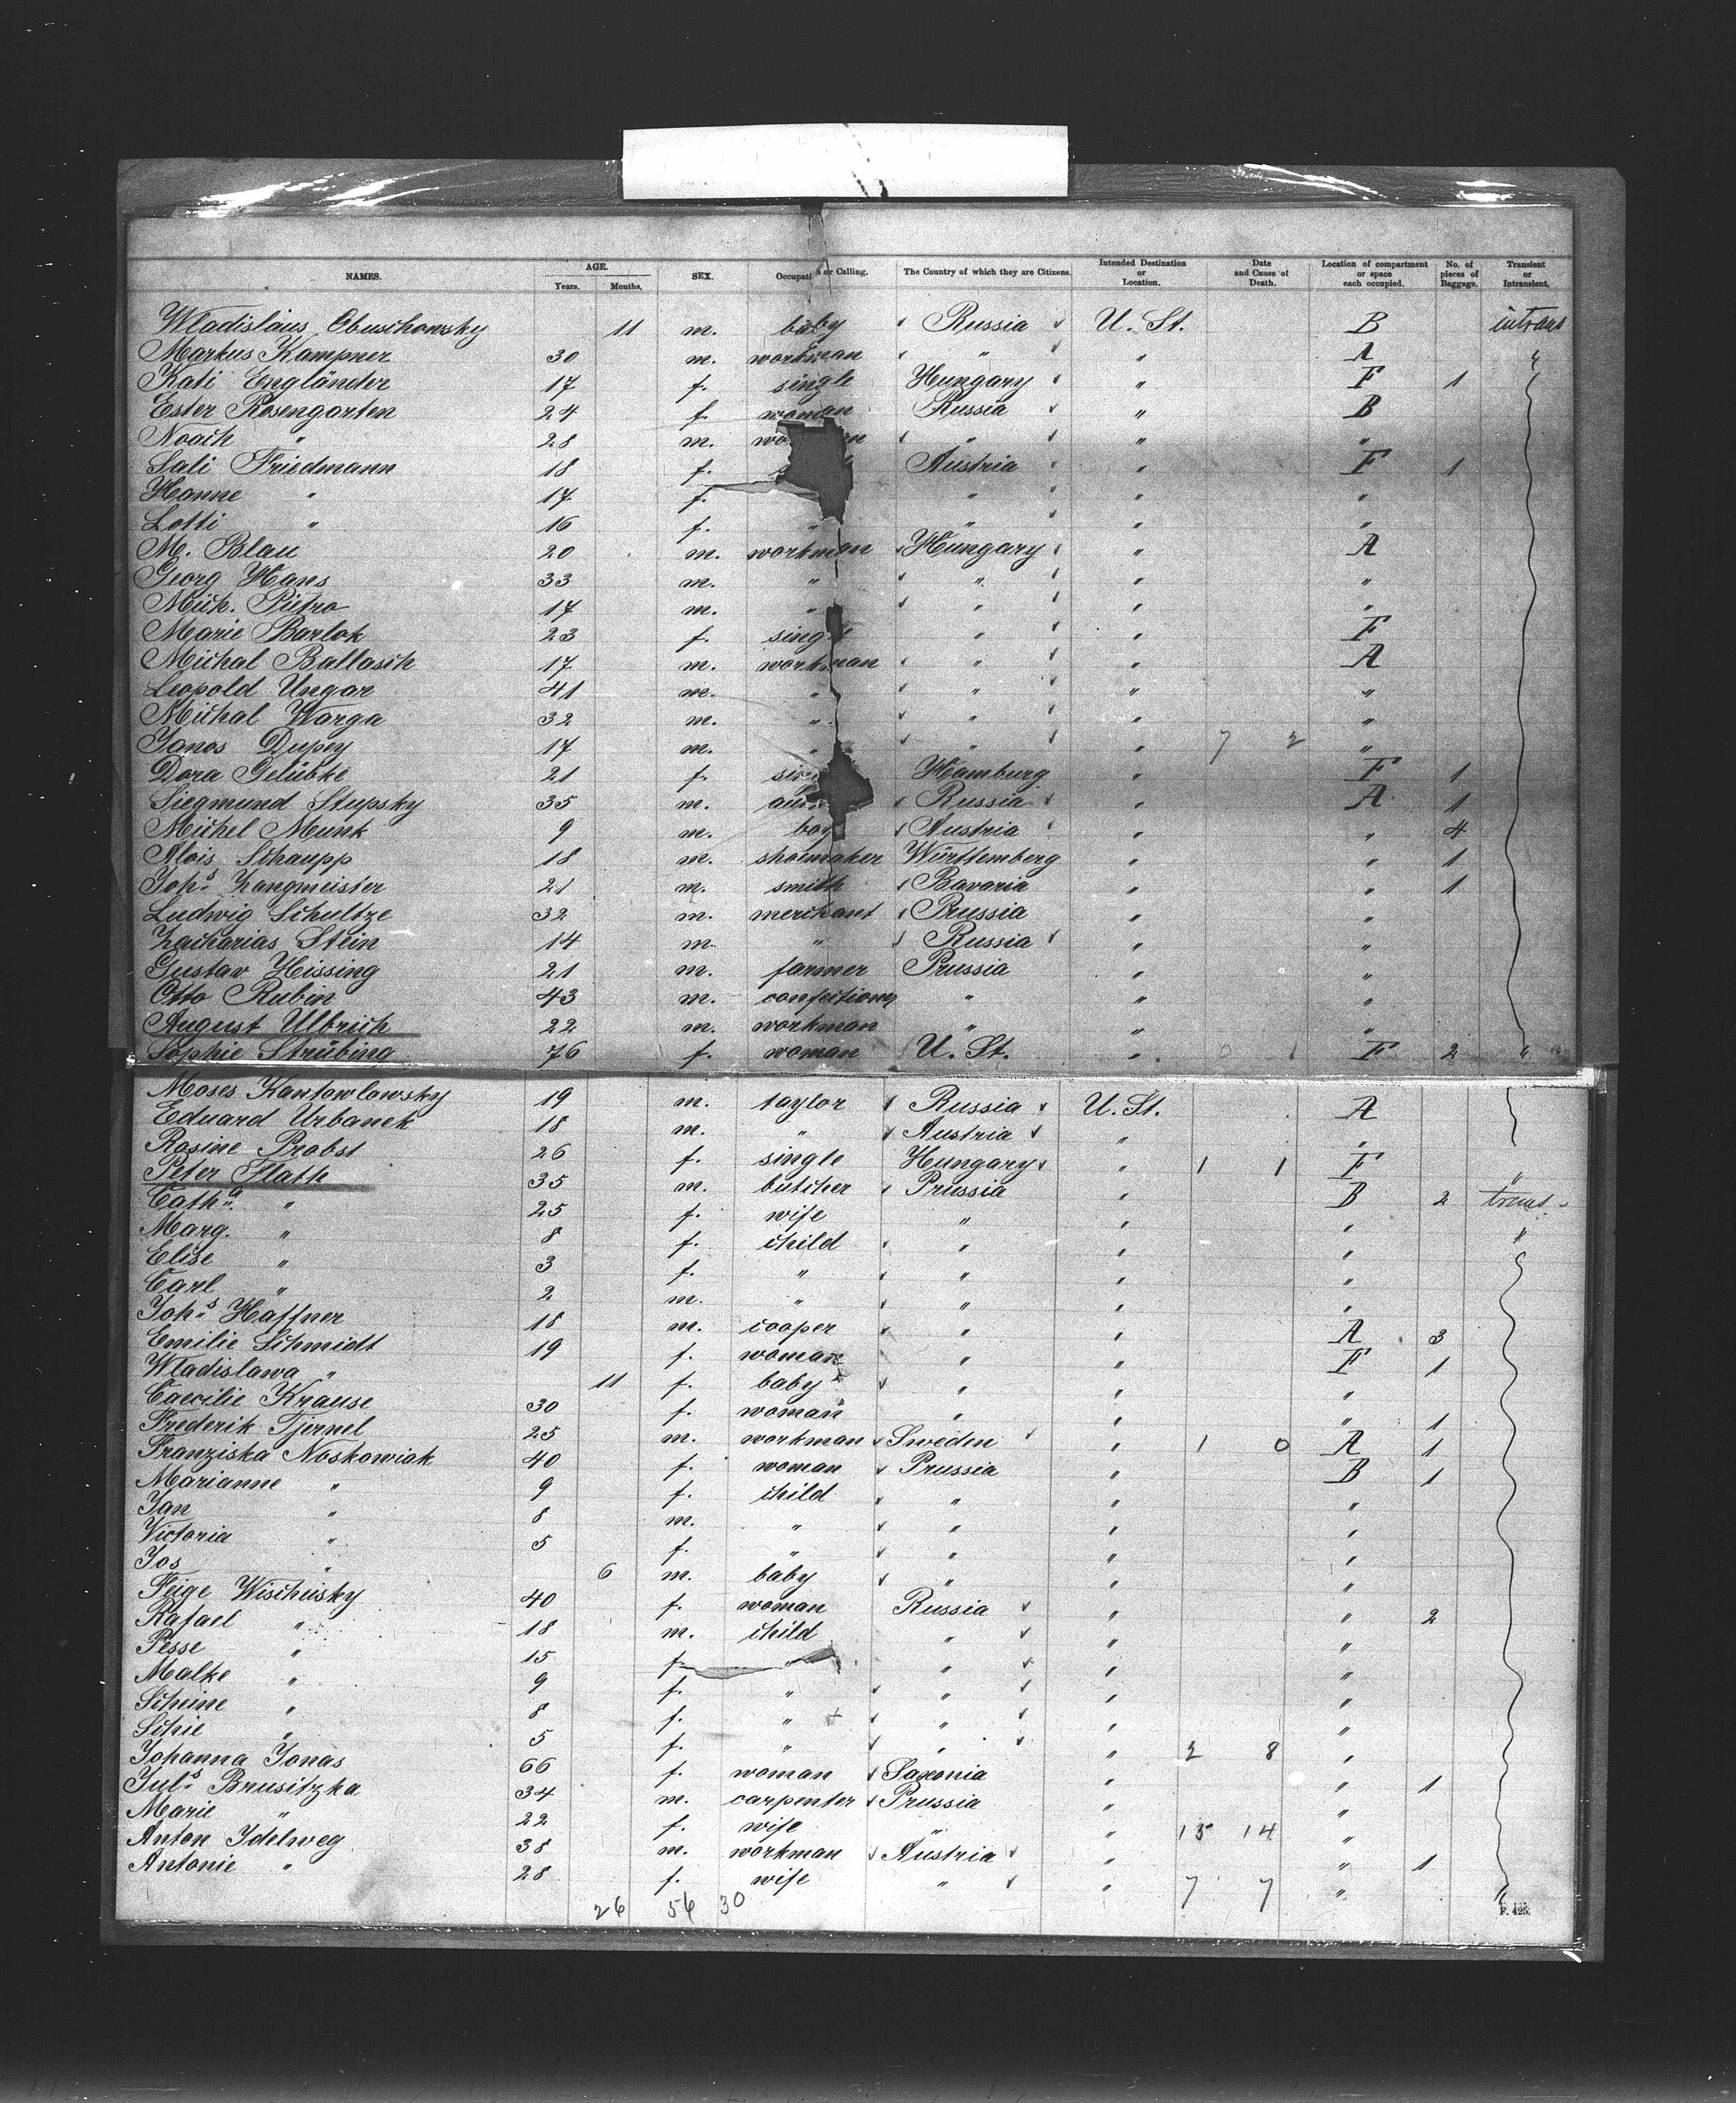 NAMES. AGE. Years. Months. SEX. Occupati or Calling. The Country of which they are Citizens. Intended Destination or Location. Date and Cause of Death. Location of compartment or space each occupied. No. of pieces of Baggage. Transient or Intransient.
Wladislaus Obuschowsky 11 m. baby Russia U. St. B intrans
Markus Kampner 30 m. workman " " A "
Kati Engländer 17 f. single Hungary " F 1
Ester Rosengarten 24 f. woman Russia " B
Noach " 28 m. " " "
Sali Friedmann 18 f. Austria " F 1
Hanne " 17 f. " " "
Lotti " 16 f. " " " "
M. Blau 20 m. workman Hungary " A
Georg Hans 33 m. " " " "
Mich. Pietro 17 m. " " " "
Marie Barlok 23 f. single " " F
Michal Ballasch 17 m. workman " " A
Leopold Ungar 41 m. " " " "
Michal Warga 32 m. " " " "
Janos Dupey 17 m. " " " 7 2 "
Dora Gelübke 21 f. Hamburg " F 1
Siegmund Stupsky 35 m. Russia " A 1
Michel Munk 9 m. boy Austria " " 4
Alois Schaupp 18 m. shoemaker Württemberg " " 1
Johs. Zangmeister 21 m. smith Bavaria " " 1
Ludwig Schultze 32 m. merchant Prussia " "
Zacharias Stein 14 m. " Russia " "
Gustav Hissing 21 m. farmer Prussia " "
Otto Rubin 43 m. confectiony " " "
August Ulbrich 22 m. workman " " "
Sophie Strübing 76 f. woman U. St. " 0 1 F 2 "
Moses Kantowlowsky 19 m. taylor Russia U. St. A
Eduard Urbanek 18 m. " Austria " "
Rosine Probst 26 f. single Hungary " 1 1 F "
Peter Flath 35 m. butcher Prussia " B 2 trans.
Catha. " 25 f. wife " " " "
Marg. " 8 f. child " " "
Elise " 3 f. " " " "
Carl " 2 m. " " " "
Johs. Haffner 18 m. cooper " " A 3
Emilie Schmidt 19 f. woman " " F 1
Wladislawa " 11 f. baby " " "
Caecilie Krause 30 f. woman " " " 1
Frederik Tjernel 25 m. workman Sweden " 1 0 A 1
Franziska Noskowiak 40 f. woman Prussia " B 1
Marianne " 9 f. child " " "
Jan " 8 m. " " " "
Victoria " 5 f. " " " "
Jos " 6 m. baby " " "
Feige Wischusky 40 f. woman Russia " " 2
Rafael " 18 m. child " " "
Pesse " 15 f. " " " "
Malke " 9 f. " " " "
Scheine " 8 f. " " " "
Schie " 5 f. " " " 2 8 "
Johanna Jonas 66 f. woman Saxonia " " 1
Juls. Brusitzka 34 m. carpenter Prussia " "
Marie " 22 f. wife " " 15 14 "
Anton Idelweg 38 m. workman Austria " " 1
Antonie " 28 f. wife " " 7 7 " "
26 56 30
F. 425.